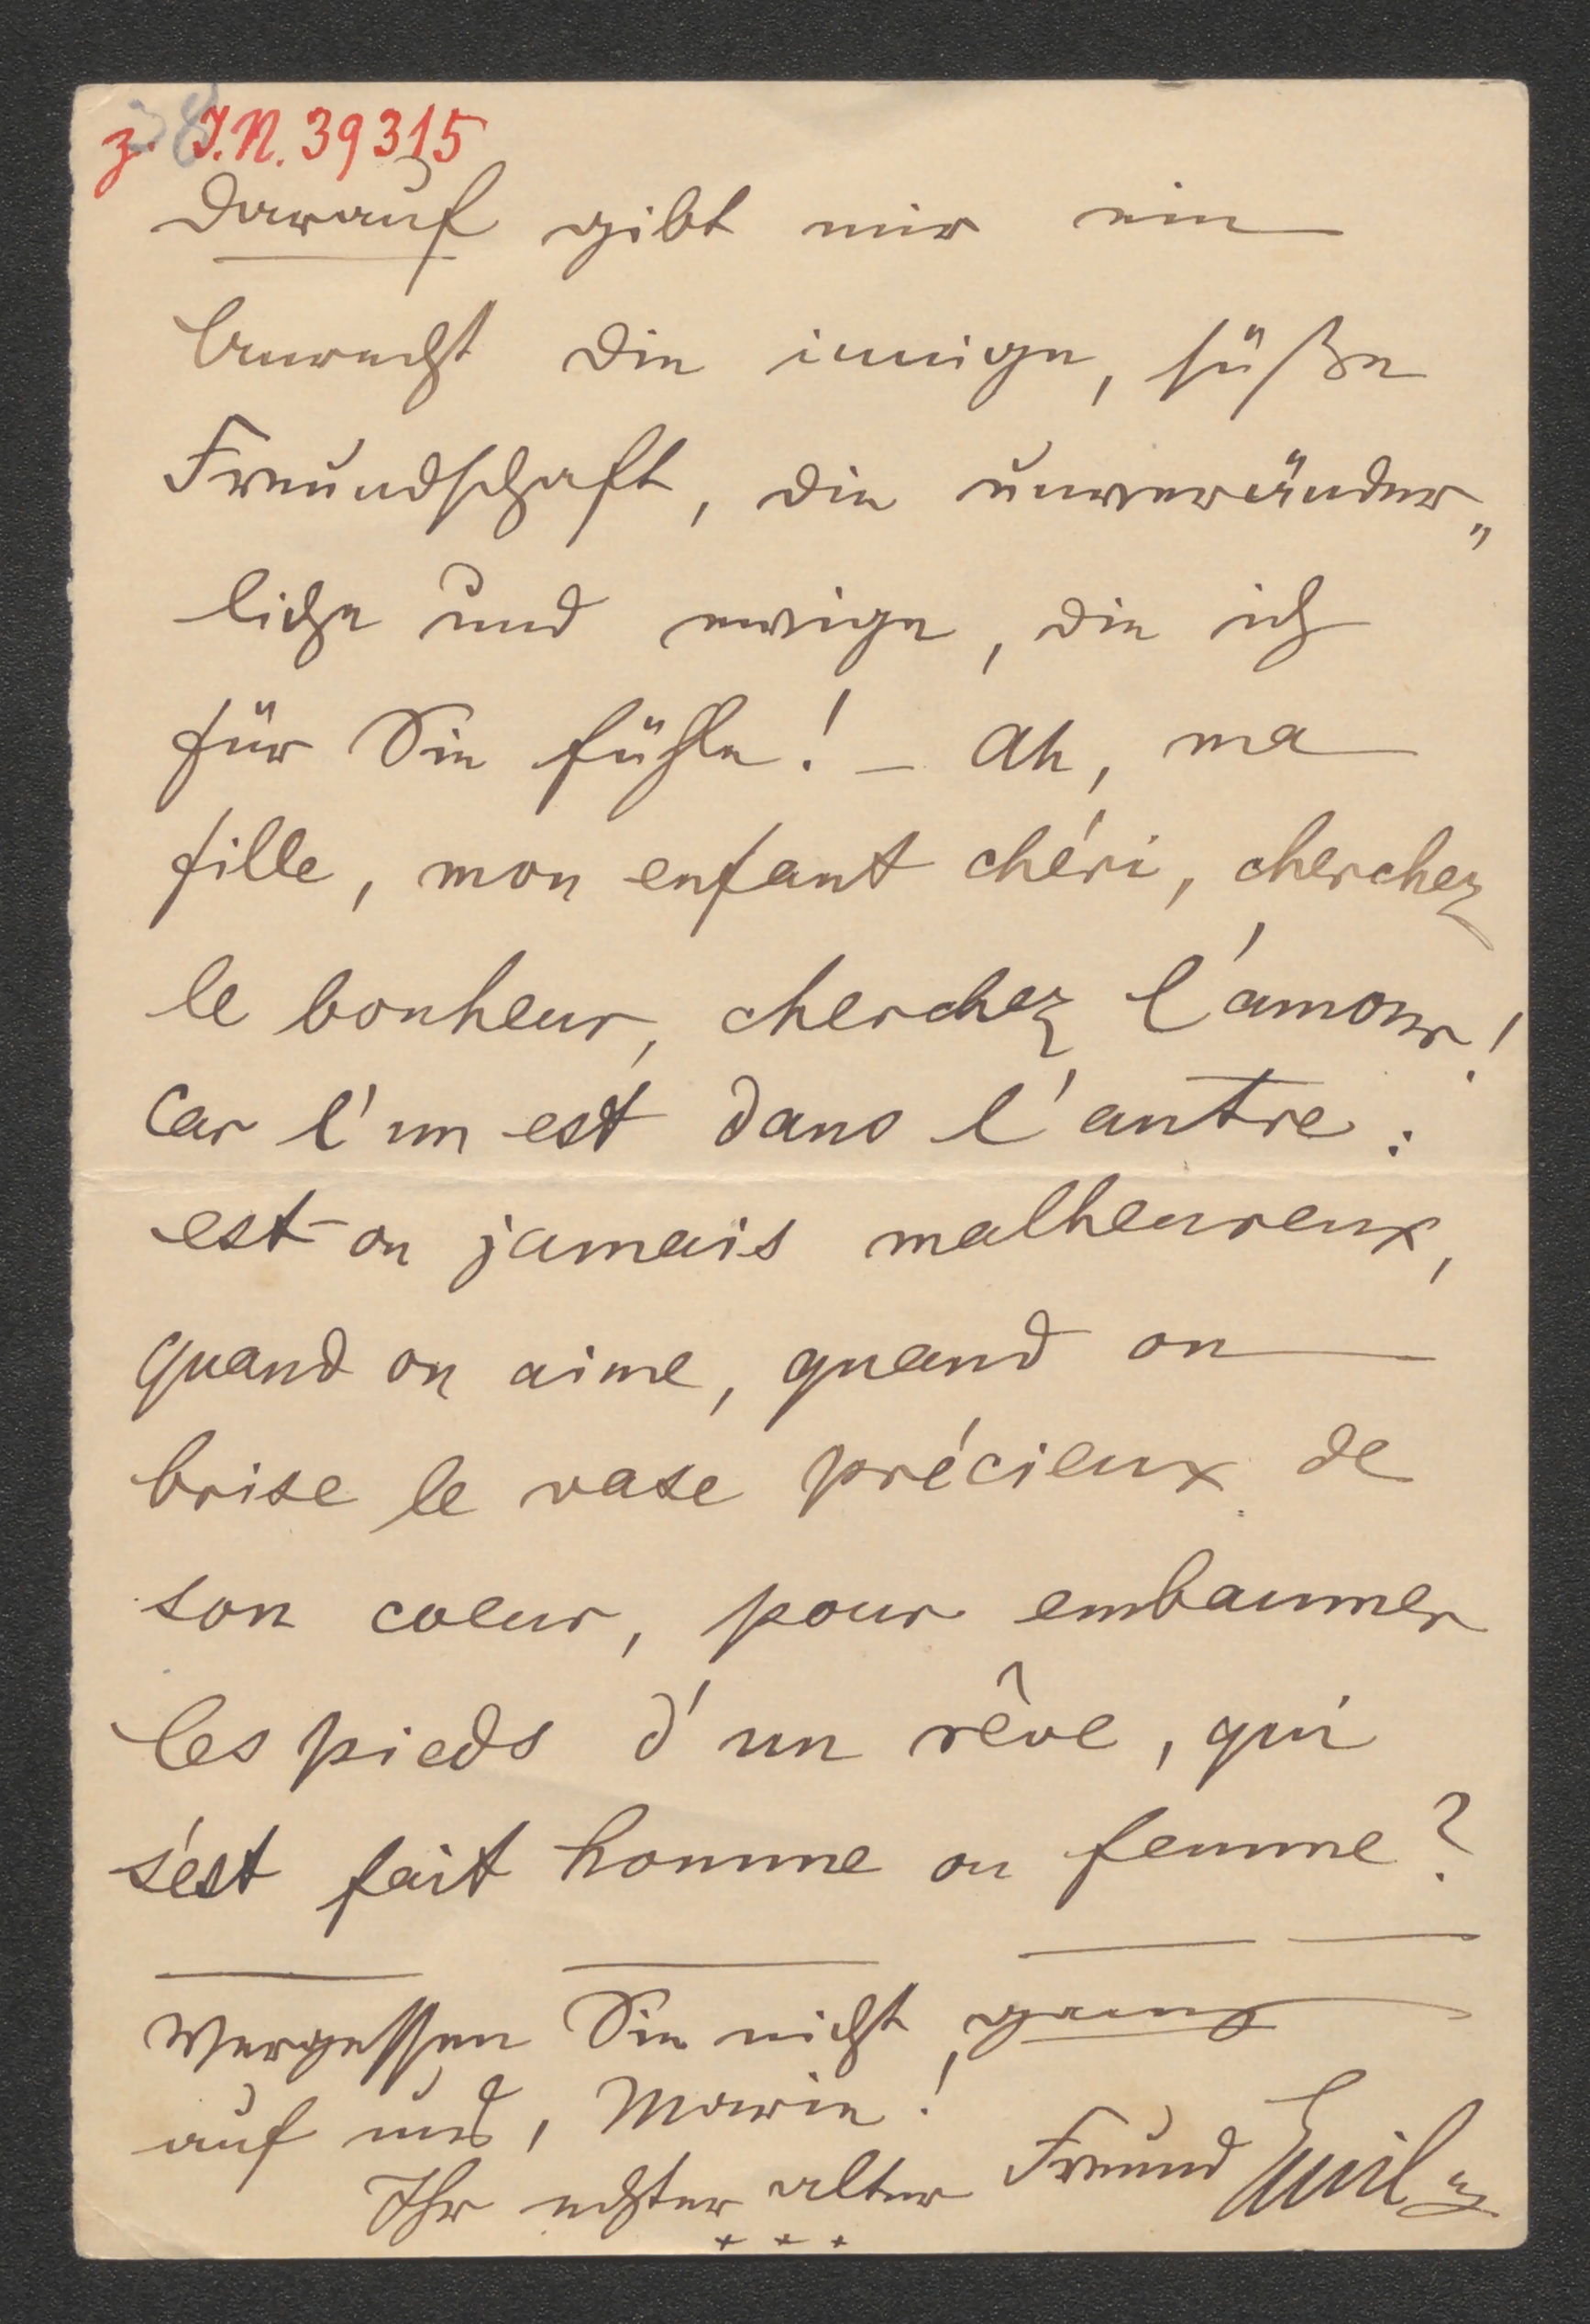 z. I.N. 39315
Darauf gibt mir ein
Anrecht die innige, süße
Freundschaft, die unveränder„
liche und ewige, die ich
für Sie fühle! – Ah, ma
fille, mon enfant chéri, cherchez
le bonheur, cherchez l'amour!
car l'un est dans l'autre:
est-on jamais malheureux,
quand on aime, quand on
brise le vase précieux de
son coeur, pour embaumer
les pieds d'un rêve, qui
s'est fait homme ou femme?
Vergessen Sie nicht ganz
auf uns, Marie!
Ihr echter alter Freund Emil
+ + +